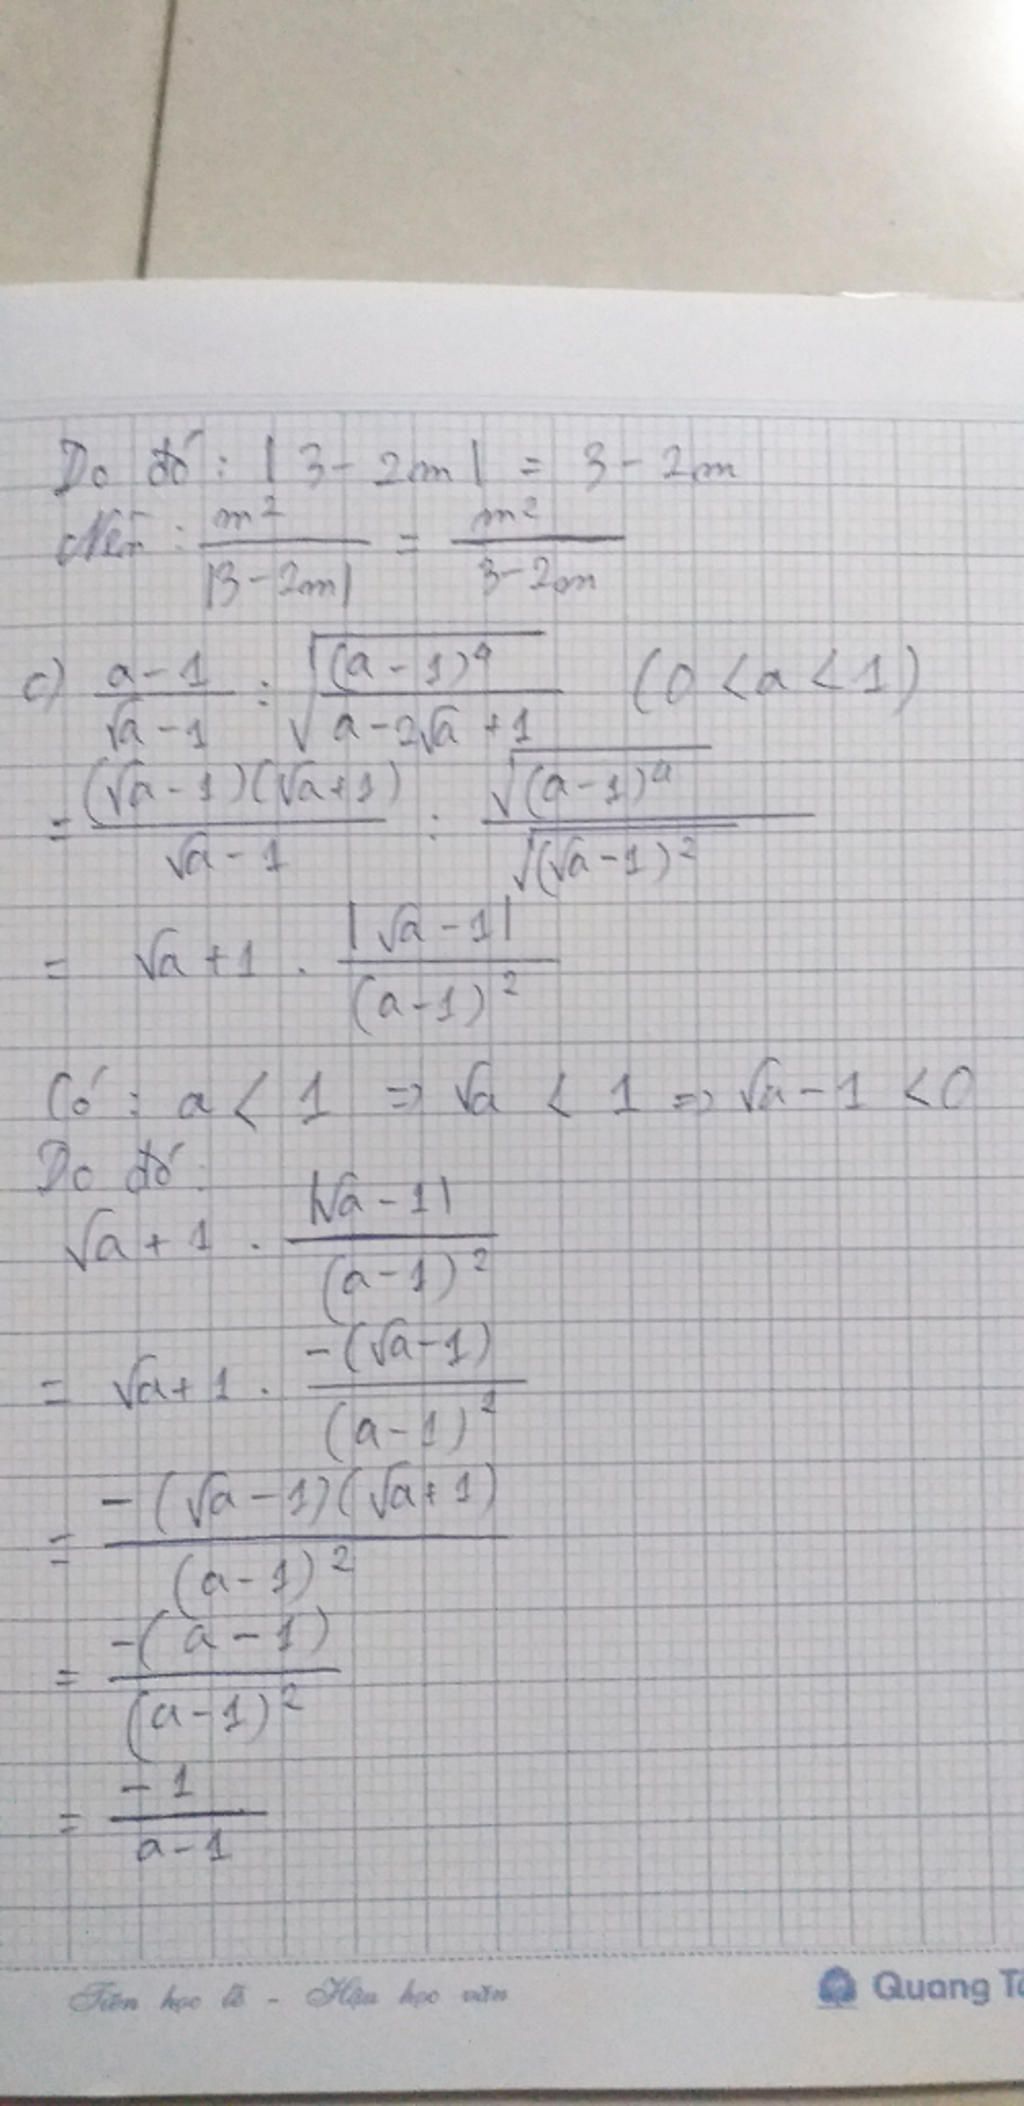 Do đó: |3 - 2m| = 3 - 2m
Nên: m² / |3 - 2m| = m² / (3 - 2m)
c) (a - 1) / (√a - 1) : √((a - 1)⁴ / (a - 2√a + 1)) (0 < a < 1)
= (√a - 1)(√a + 1) / (√a - 1) : √(a - 1)⁴ / √(√a - 1)²
= √a + 1 . |√a - 1| / (a - 1)²
Có: a < 1 => √a < 1 => √a - 1 < 0
Do đó:
√a + 1 . |√a - 1| / (a - 1)²
= √a + 1 . -(√a - 1) / (a - 1)²
= -(√a - 1)(√a + 1) / (a - 1)²
= -(a - 1) / (a - 1)²
= -1 / (a - 1)
Tiên học lễ - Hậu học văn
Quang